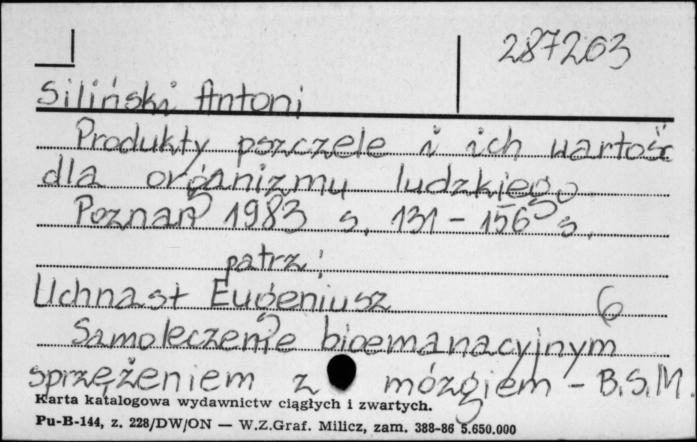 287263
Siliński Antoni
Produkty pszczele i ich wartość
dla organizmu ludzkiego
Poznań 1983 s. 131 - 156 s.
patrz:
Uchnast Eugeniusz 6
Samoleczenie bioemanacyjnym
sprzężeniem z mózgiem - B.S.M.
Karta katalogowa wydawnictw ciągłych i zwartych.
Pu-B-144, z. 228/DW/ON — W.Z.Graf. Milicz, zam. 388-86 5.650.000